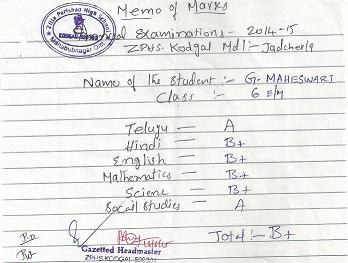 Memo of Marks
Zilla Parishad High School
KODGAL-509301
Mahabubnagar Dist.
Examinations - 2014-15
ZPHS. Kodgal Mdl:- Jadcherla
Name of the Student :- G. MAHESWARI
Class :- 6 E/M
Telugu — A
Hindi — B+
English — B+
Mathematics — B+
Science — B+
Social Studies — A
Total :- B+
Gazetted Headmaster
ZPHS.KODGAL-509301